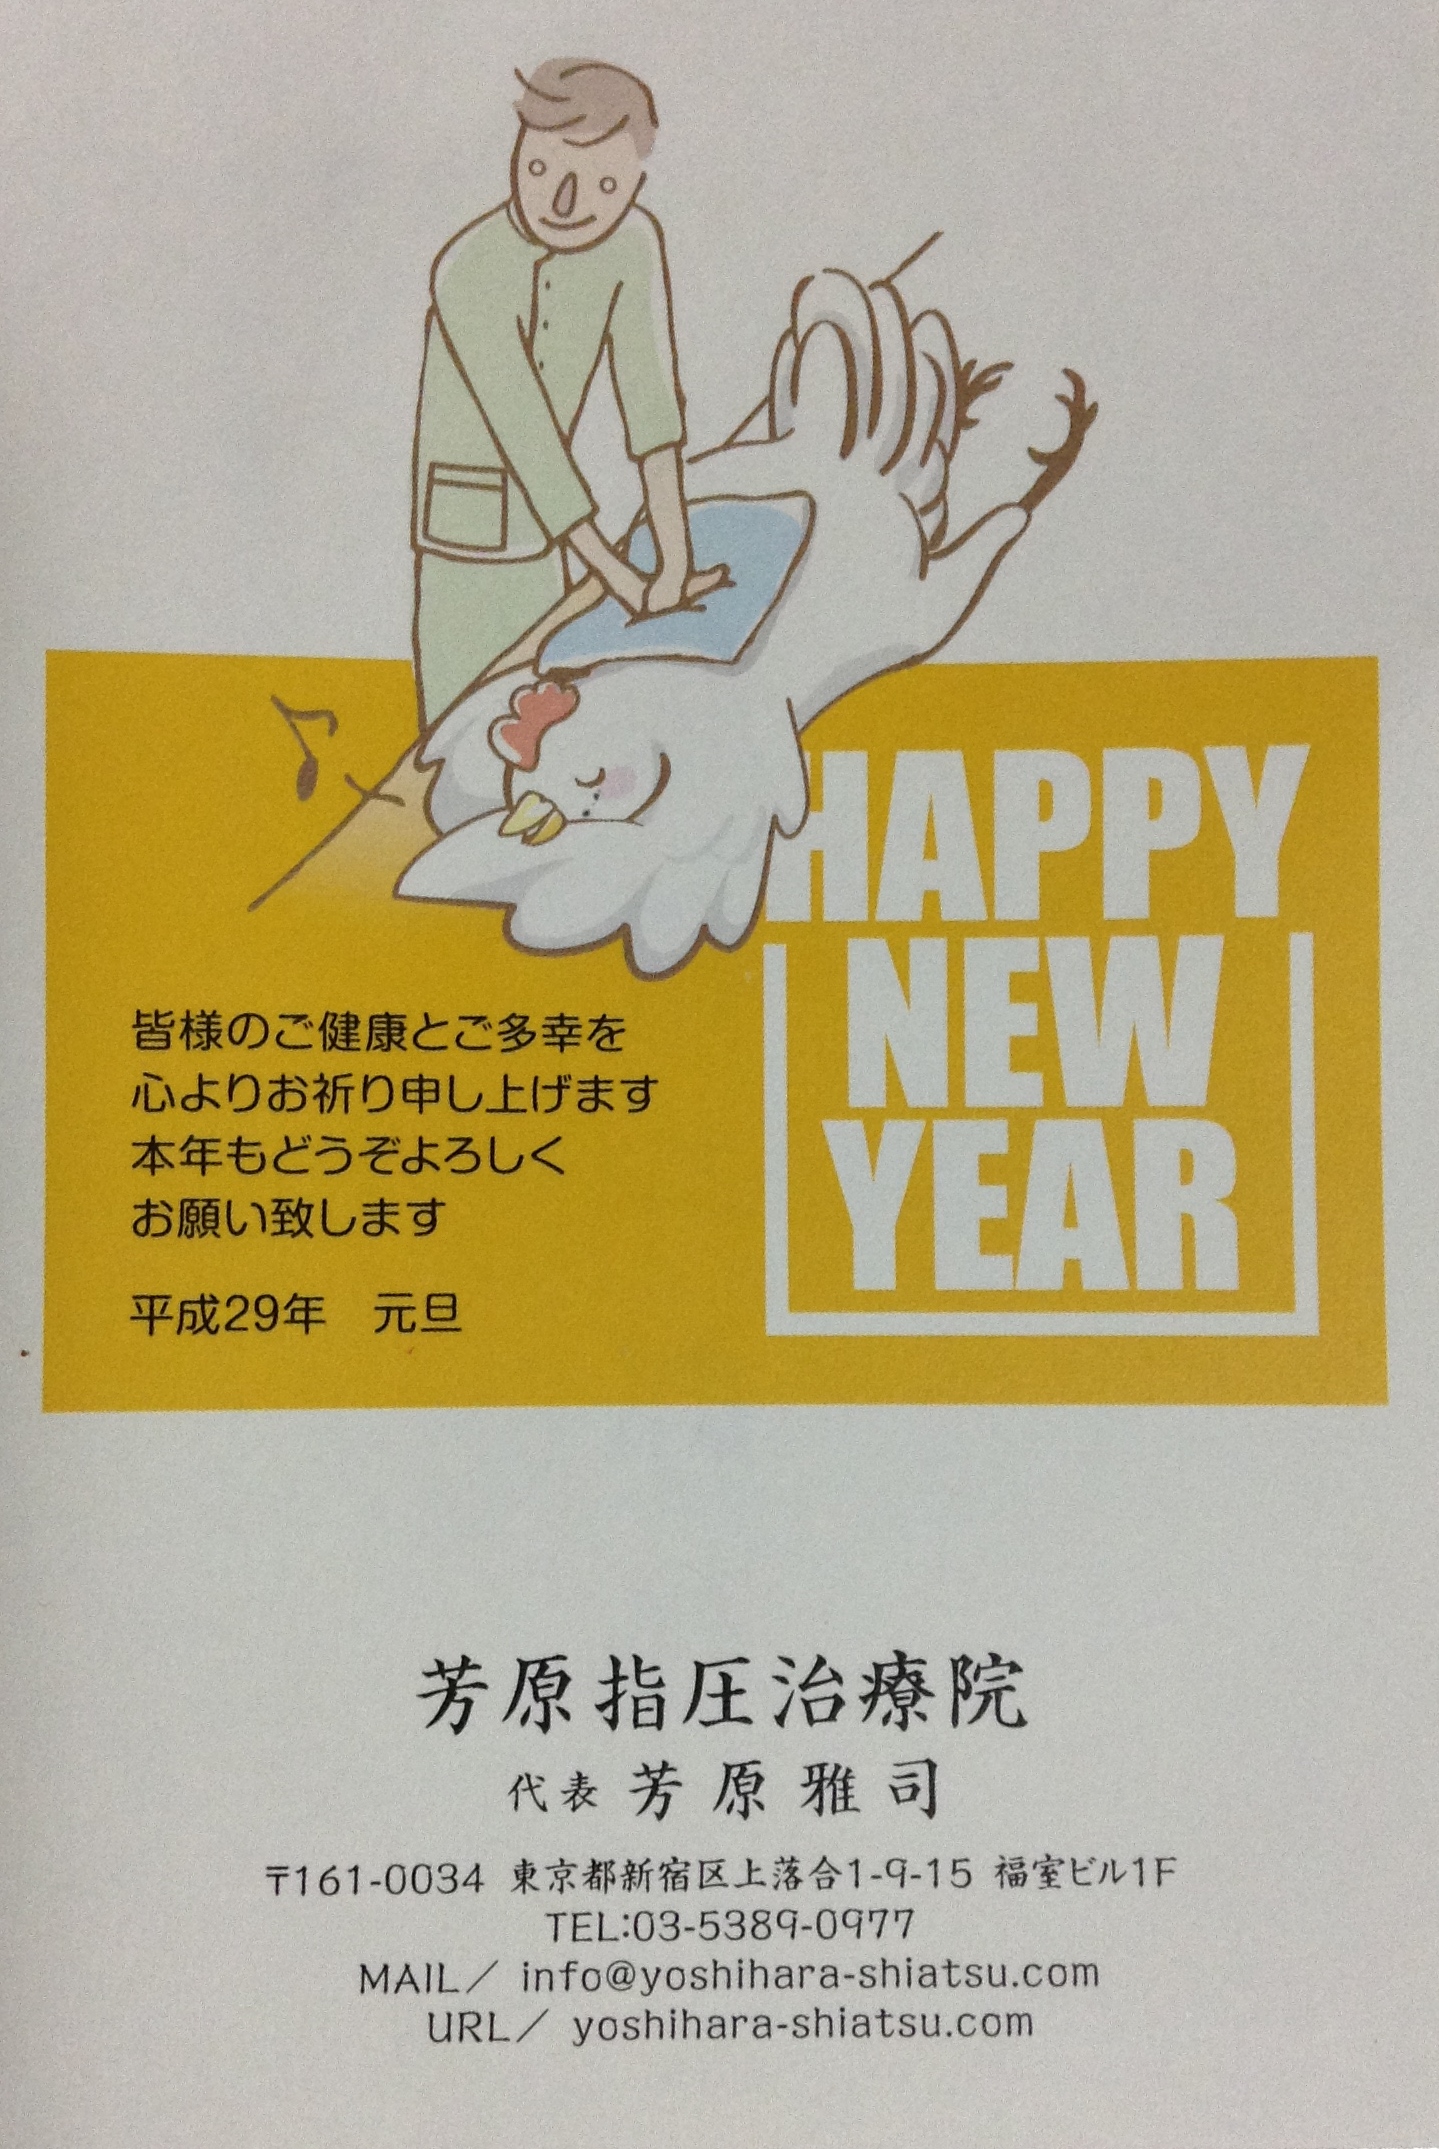 HAPPY
NEW
YEAR
皆様のご健康とご多幸を
心よりお祈り申し上げます
本年もどうぞよろしく
お願い致します
平成29年　元旦
芳原指圧治療院
代表 芳原雅司
〒161-0034 東京都新宿区上落合1-9-15 福室ビル1F
TEL:03-5389-0977
MAIL／ info@yoshihara-shiatsu.com
URL／ yoshihara-shiatsu.com